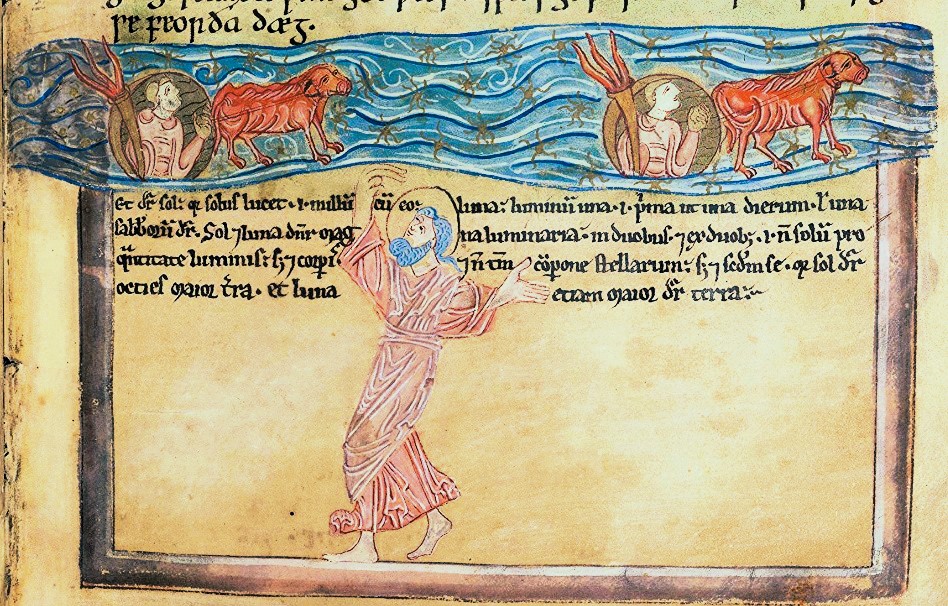 se feorða dæg.
Et dr̄ sol: qͥ solus lucet · ı · nullū cū eo: luna: luminū una · ı · p̄ma ut una dierum · ł una
sabborū dr̄. Sol ⁊ luna dn̄r mag na luminaria · in duobus · ⁊ ex duobꝫ · ı · n̄ solū pro
qͣntitate luminis: sꝫ ⁊ corpori ⁊ n̄ tm̄ cōpone stellarum: sꝫ ⁊ scdm se · qͥ sol dr̄
octies maior t̄ra · et luna etiam maior dr̄ terra:~